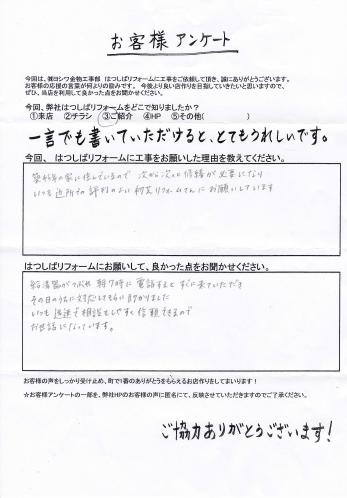 お客様 アンケート
今回は、㈱ヨシワ金物工事部 はつしばリフォームに工事をご依頼して頂き、誠にありがとうございます。
お客様の応援の言葉が何よりの励みです。 今後より良い店作りを目指していきたいと思いますので、
ぜひ、当店を利用して良かった点をお聞かせください。
今回、弊社はつしばリフォームをどこで知りましたか?
①来店 ②チラシ ③ご紹介 ④HP ⑤その他( )
一言でも書いていただけると、とてもうれしいです。
今回、 はつしばリフォームに工事をお願いした理由を教えてください。
築45年の家に住んでいるので 次から次へと修繕が必要になり
いつも近所での評判のよい初芝リフォームさんにお願いしています
はつしばリフォームにお願いして、良かった点をお聞かせください。
給湯器がつぶれ 朝7時に電話すると すぐに来ていただき
その日のうちに対応してもらい助かりました
いつも迅速で相談もしやすく信頼できるので
お世話になっています。
お客様の声をしっかり受け止め、町で1番のありがとうをもらえるお店作りをしてまいります!
☆お客様アンケートの一部を、弊社HPのお客様の声に匿名にて、反映させていただきますのでご了承ください。
ご協力ありがとうございます!